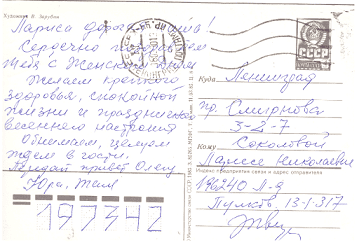 Художник В. Зарубин
Лариса дорогая
Сердечно поздравляем
тебя с Женским днем
Желаем крепкого
здоровья, спокойной
жизни и праздничного
весеннего настроения
Обнимаем, целуем
ждем в гости.
Передай привет Олегу
Юра,
197342
СССР
Куда Ленинград
пр. Смирнова
3-2-7
Кому Соколовой
Ларисе Николаевне
Индекс предприятия связи и адрес отправителя
196240 Л-д
13-1-317